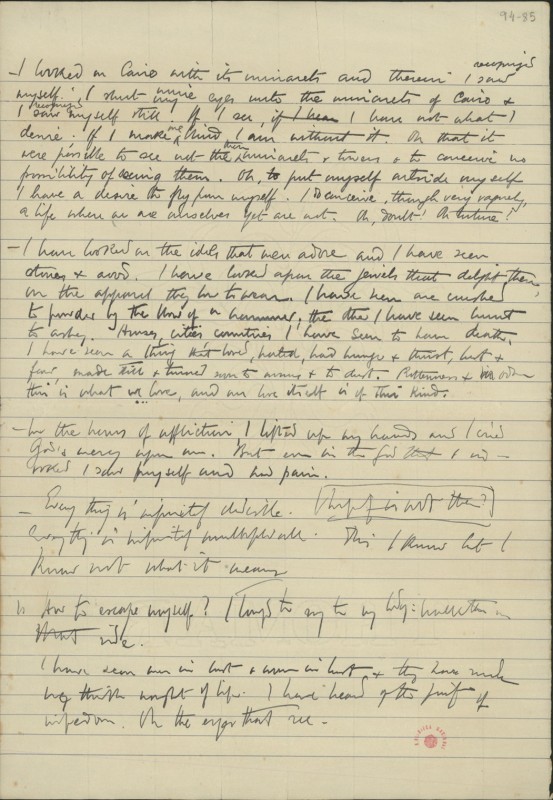 94-85
recognized
– I looked on Cairo with its minarets and therein I saw
myself. I shut mine eyes unto the minarets of Cairo &
recognized
I saw myself still. If I see, if I hear I have not what I
desire. If I make me blind, I am without it. Oh that it
were possible to see not the minarets & towers & to conceive no
possibility of seeing them. Oh, to put myself outside myself
I have a desire to fly from myself. I conceive, though very vaguely,
a life where we are ourselves yet are not. Oh, doubt! Oh torture!
– I have looked on the idols that men adore and I have seen
stones & wood. I have looked upon the jewels that delight them,
on the apparel they love to wear. I have seen one crushed
to powder by the blow of a hammer, the other I have seen burnt
to ashes. Houses, cities, countries I have seen to have death.
I have seen a thing that loved, hated, had hunger & thirst, lust &
fear made still & turned soon to worms & to dust. Rottenness &
this is what we love, and our love itself is of this kind.
– In the hours of affliction I lifted up my hands and I cried
God's mercy upon me. But even in the God that I in-
voked I saw myself and had pain.
– Everything is infinitely divisible.
Everything is infinitely multipliable. This I know but I
know not what it means
How to escape myself?
side.
I have seen men in lust & women in lust & they have made
me think nought of life. I have heard of the
wisdom. Oh the eyes that see –